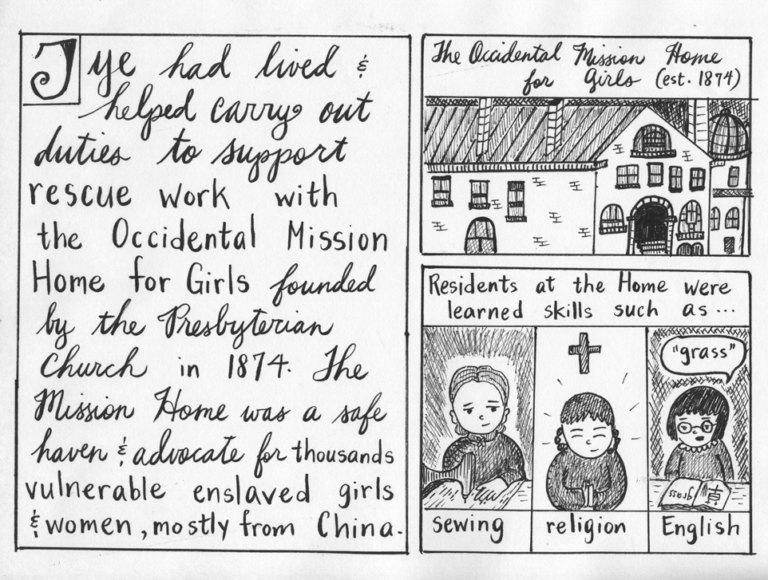 Tye had lived &
helped carry out
duties to support
rescue work with
the Occidental Mission
Home for Girls founded
by the Presbyterian
Church in 1874. The
Mission Home was a safe
haven & advocate for thousands
vulnerable enslaved girls
& women, mostly from China.
The Occidental Mission Home
for Girls (est. 1874)
Residents at the Home were
learned skills such as ...
"grass"
sewing
religion
English